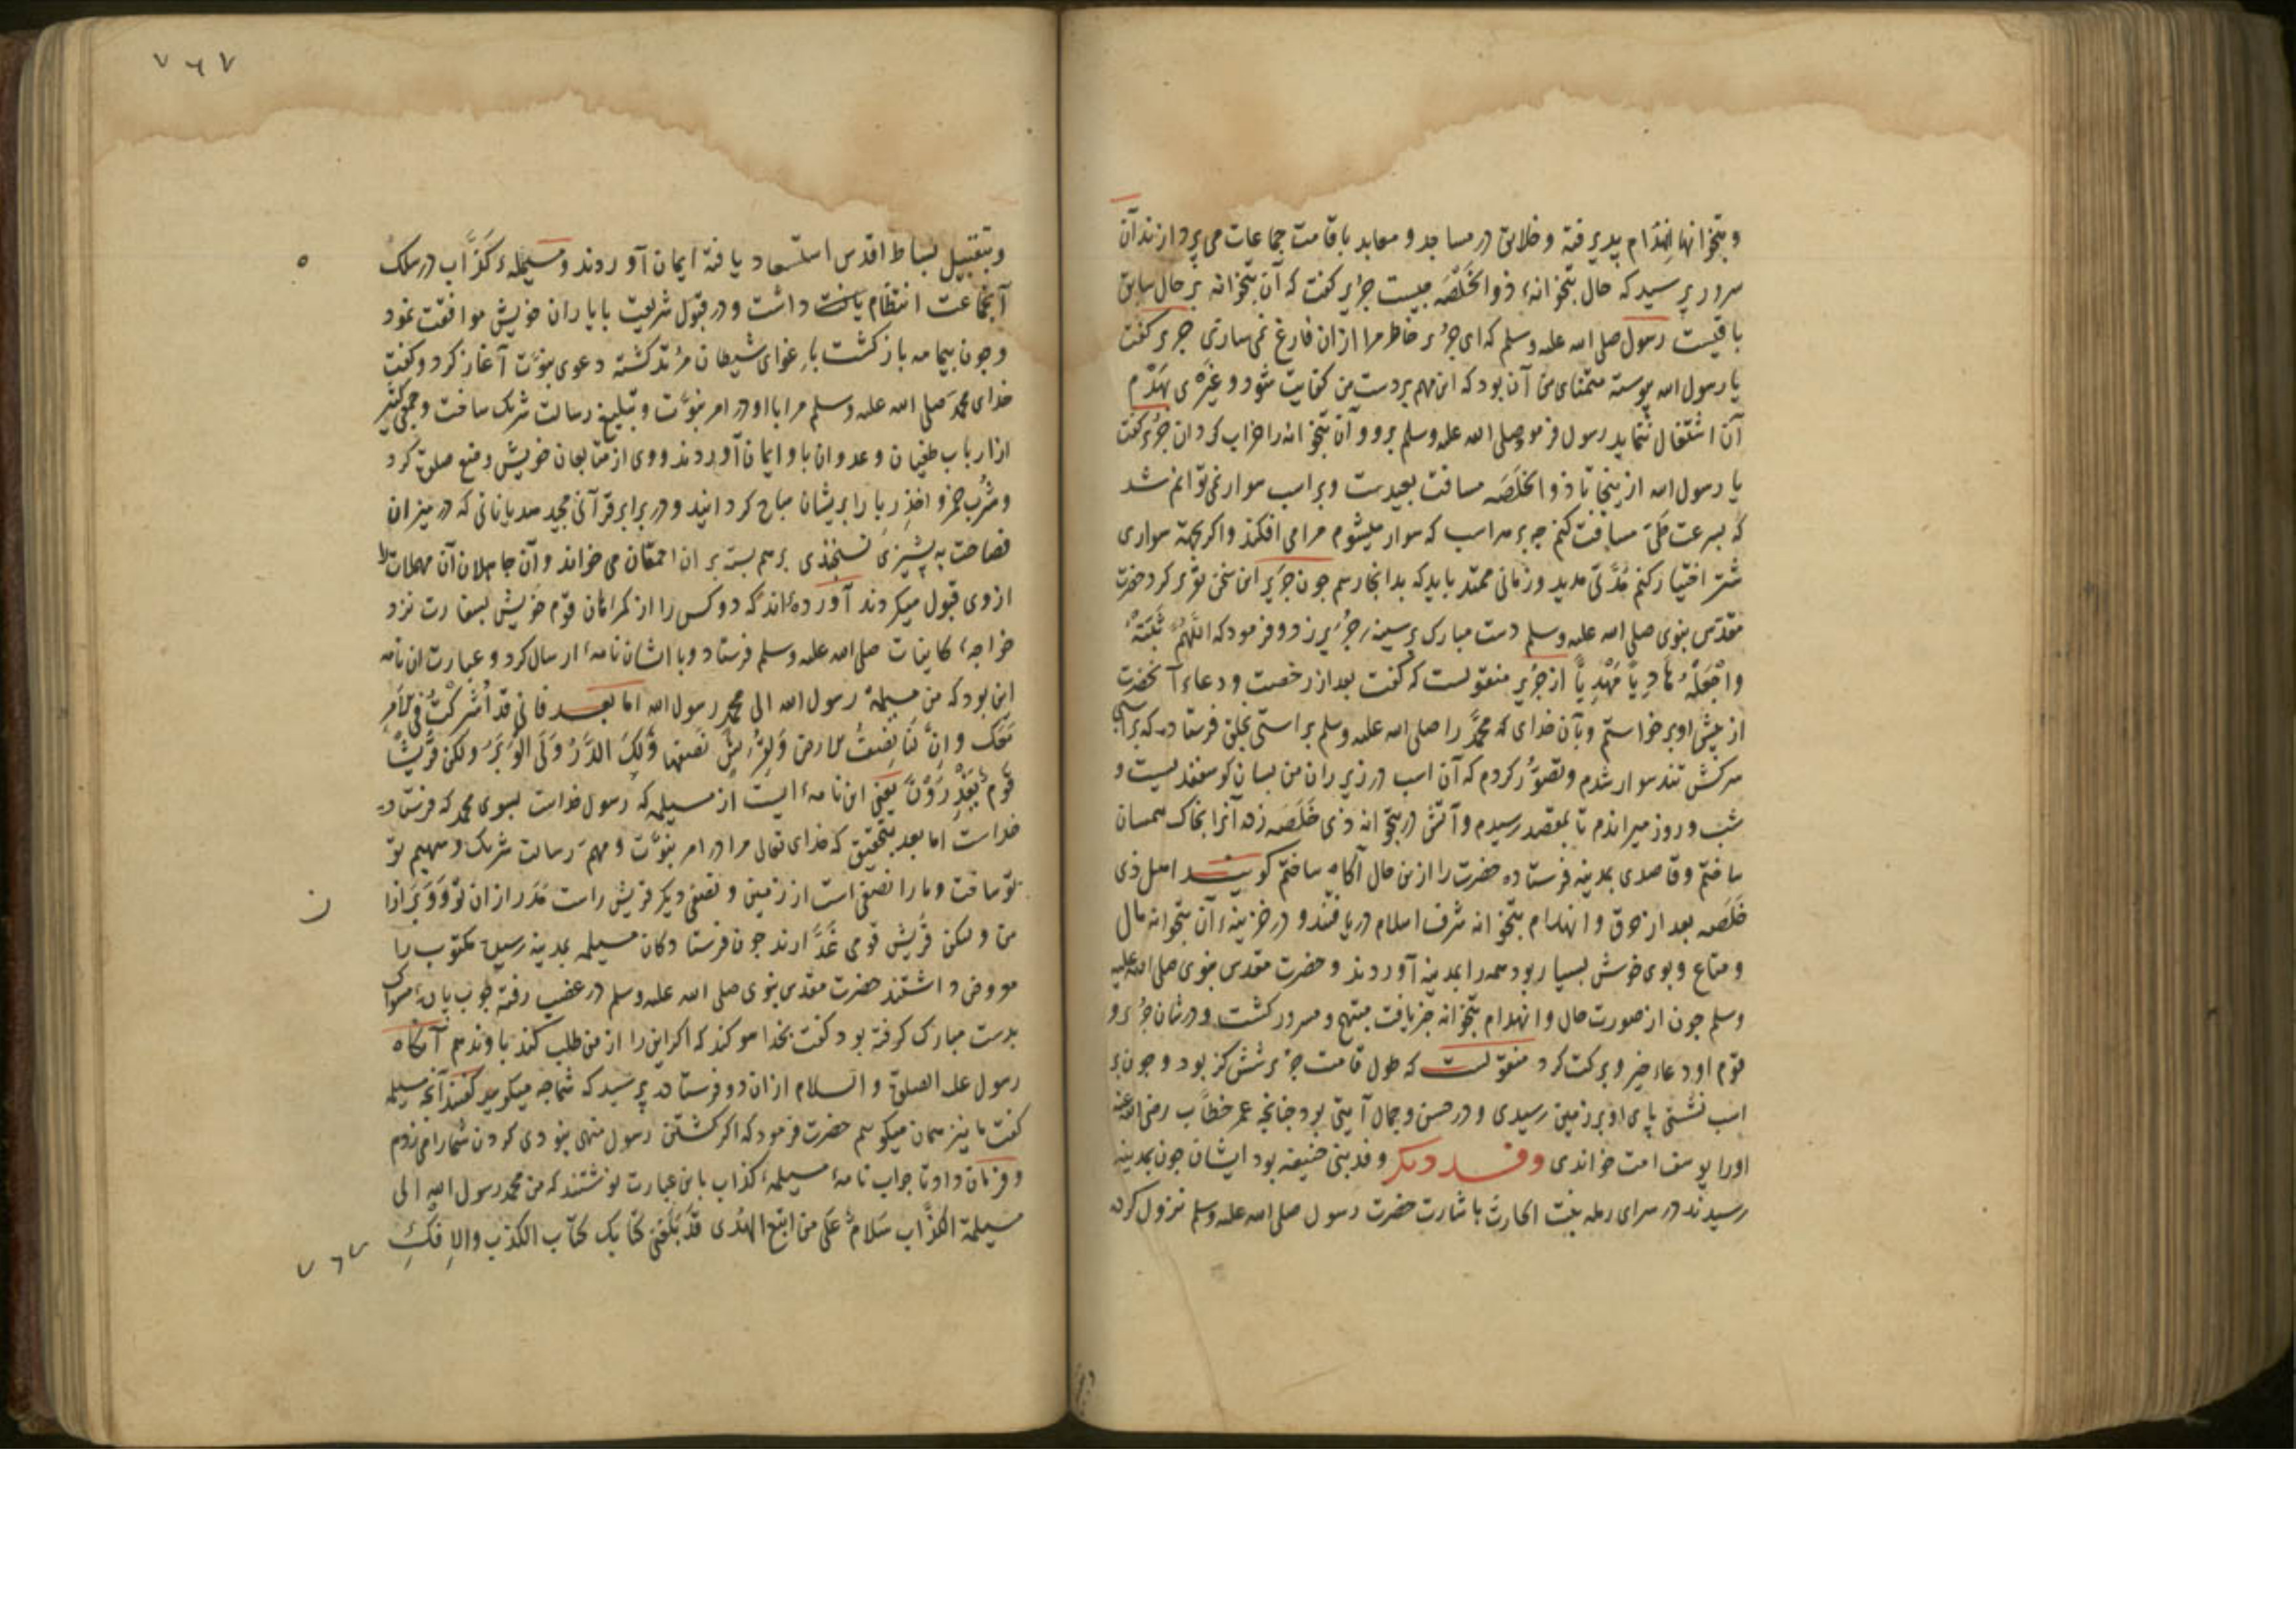 و بتخوانها انهدام پذیرفته و خلایق در مساجد و معابد باقامت جماعات می پردازند آن
سرور پرسید که حال بتخوانهٔ ذو الخلصه چیست جریر کفت که آن بتخوانه بر حال سابق
باقیست رسول صلی الله علیه وسلم که ای جریر خاطر مرا ازان فارغ نمی سازی جریر کفت
یا رسول الله پیوسته متمنای من آن بود که این مهم بردست من کفایت شود و غیری بهدم
آن اشتغال ننماید رسول فرمود صلی الله علیه وسلم برو و آن بتخوانه را خراب کردان جریر کفت
یا رسول الله از ینجا تا ذو الخلصه مسافت بعیدست و بر اسب سوار نمی توانم شد
که بسرعت طی مسافت کنم چه بر هر اسب که سوار میشوم مرا می افکند و اکر بجهة سواری
شتر اختیار کنم مدتی مدید و زمانی ممتد باید که بدانجا رسم جون جریر این سخن تقریر کرد حضرت
مقدس نبوی صلی الله علیه وسلم دست مبارک بر سینهٔ جریر زد و فرمود که اللهم ثبته
واجعله هادیا مهدیا از جریر منقولست که کفت بعد از رخصت و دعاء آنحضرت
از پیش او برخواستم و بآن خدای که محمد را صلی الله علیه وسلم براستی بخلق فرستاده که بر اسبی
سرکش تند سوار شدم و تصور کردم که آن اسب در زیر ران من بسان کوسفندیست و
شب و روز میراندم تا بمقصد رسیدم و آتش در بتخوانه ذی خلصه زده آنرا بخاک همسان
ساختم و قاصدی بمدینه فرستاده حضرت را ازین حال آکاه ساختم کویند اهل ذی
خلصه بعد از حرق و انهدام بتخوانه شرف اسلام دریافتند و در خزینهٔ آن بتخوانه مال
و متاع و بوی خوش بسیار بود همه را بمدینه آوردند و حضرت مقدس نبوی صلی الله علیه
وسلم جون از صورت حال و انهدام بتخوانه خبر یافت مبتهج و مسرور کشت و در شان جریر و
قوم او دعاء خیر و برکت کرد منقولست که طول قامت جریر شش کز بود و جون بر
اسب نشستی پای او بر زمین رسیدی و در حسن و جمال آیتی بود جنانجه عمر خطاب رضی الله عنه
او را یوسف امت خواندی وفد دیکر وفد بنی حنیفه بود ایشان جون بمدینه
رسیدند در سرای رمله بنت الحارث باشارت حضرت رسول صلی الله علیه وسلم نزول کرده
۷۶۷
و بتقبیل بساط اقدس استسعاد یافته ایمان آوردند و مسیلمهٔ کذاب در سلک
آنجماعت انتظام داشت و در قبول شریعت با یاران خویش موافقت نمود
و جون بیمامه باز کشت باغوای شیطان مرتد کشته دعوی نبوت آغاز کرد و کفت
خدای محمد صلی الله علیه وسلم مرا با او در امر نبوت و تبلیغ رسالت شریک ساخت و جمعی کثیر
از ارباب طغیان و عدوان باو ایمان آوردند و وی از متابعان خویش وضع صلوة کرد
و شرب خمر و اخذ ربا را بریشان مباح کردانید و در برابر قرآن مجید هذیاناتی که در میزان
فصاحت به پشیزی نسنجدی برهم بسته بر ان احمقان می خواند و آن جاهلان آن مهملات را
از وی قبول میکردند آورده‌اند که دو کس را از کمراهان قوم خویش بسفارت نزد
خواجهٔ کاینات صلی الله علیه وسلم فرستاد و با ایشان نامهٔ ارسال کرد و عبارت ان نامه
این بود که من مسیلمة رسول الله الی محمد رسول الله اما بعد فانی قد اشرکت فی الامر
معک و ان لنا نصف الارض و لقریش نصفها ولک المدر ولی الوبر ولکن قریشا
قوم یغدرون یعنی این نامه‌ایست از مسیلمه که رسول خداست بسوی محمد که فرستاده
خداست اما بعد بتحقیق که خدای تعالی مرا در امر نبوت و مهم رسالت شریک و سهیم تو
تو ساخت و ما را نصفی است از زمین و نصفی دیکر قریش راست مدر ازان تو و وبر ازان
من و لیکن قریش قومی غدارند جون فرستادکان مسیلمه بمدینه رسیده مکتوب را
معروض داشتند حضرت مقدس نبوی صلی الله علیه وسلم در غضب رفته جوب پارهٔ مسواک
بدست مبارک کرفته بود کفت بخدا سوکند که اکر این را از من طلب کند باو ندهم آنکاه
رسول علیه الصلوة والسلام ازان دو فرستاده پرسید که شما جه میکویید کفتند آنجه مسیلمه
کفت ما نیز همان میکوییم حضرت فرمود که اکر کشتن رسول منهی نبودی کردن شما را می زدم
و فرمان داد تا جواب نامهٔ مسیلمهٔ کذاب باین عبارت نوشتند که من محمد رسول الله الی
مسیلمة الکذاب سلام علی من اتبع الهدی قد بلغنی کتابک کتاب الکذب والافک
۷۶۷